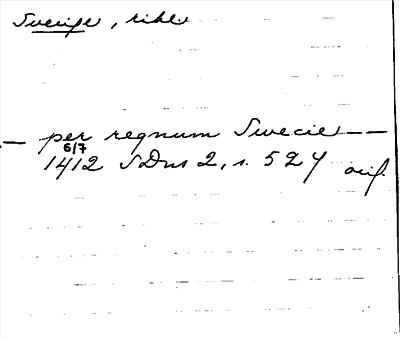 Sverige, rike
— per regnum Swecie —
6/7
1412 SDns 2, s. 524 orig.